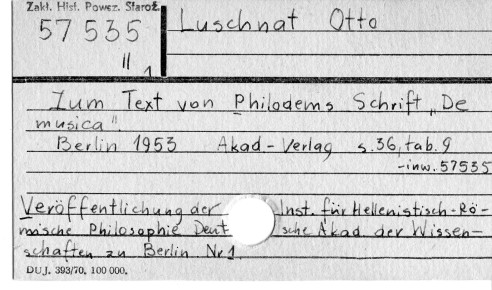 Zakł. Hist. Powsz. Staroż.
57 535
II 1
Luschnat Otto
Zum Text von Philodems Schrift „De
musica".
Berlin 1953 Akad.-Verlag s.36, tab.9
-inw. 57535
Veröffentlichung der Inst. für Hellenistisch-Rö-
mische Philosophie Deut sche Akad. der Wissen-
schaften zu Berlin Nr 1.
DUJ. 393/70. 100 000.